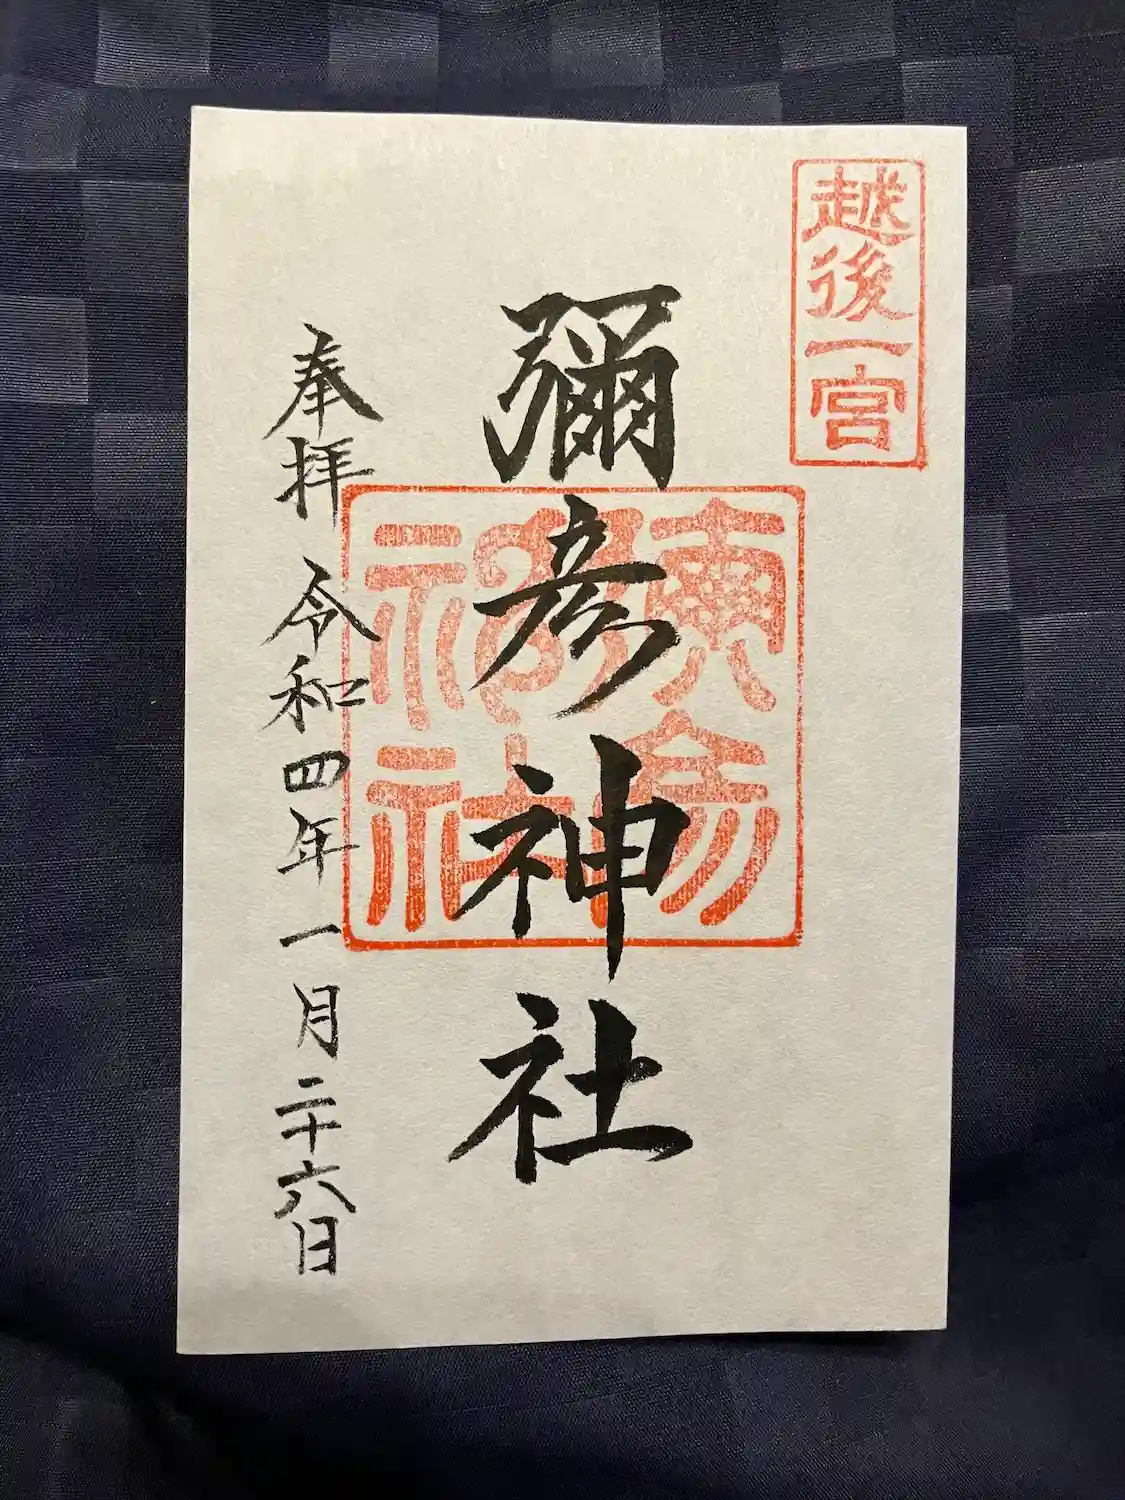 越後一宮
彌彦神社
奉拝 令和四年一月二十六日